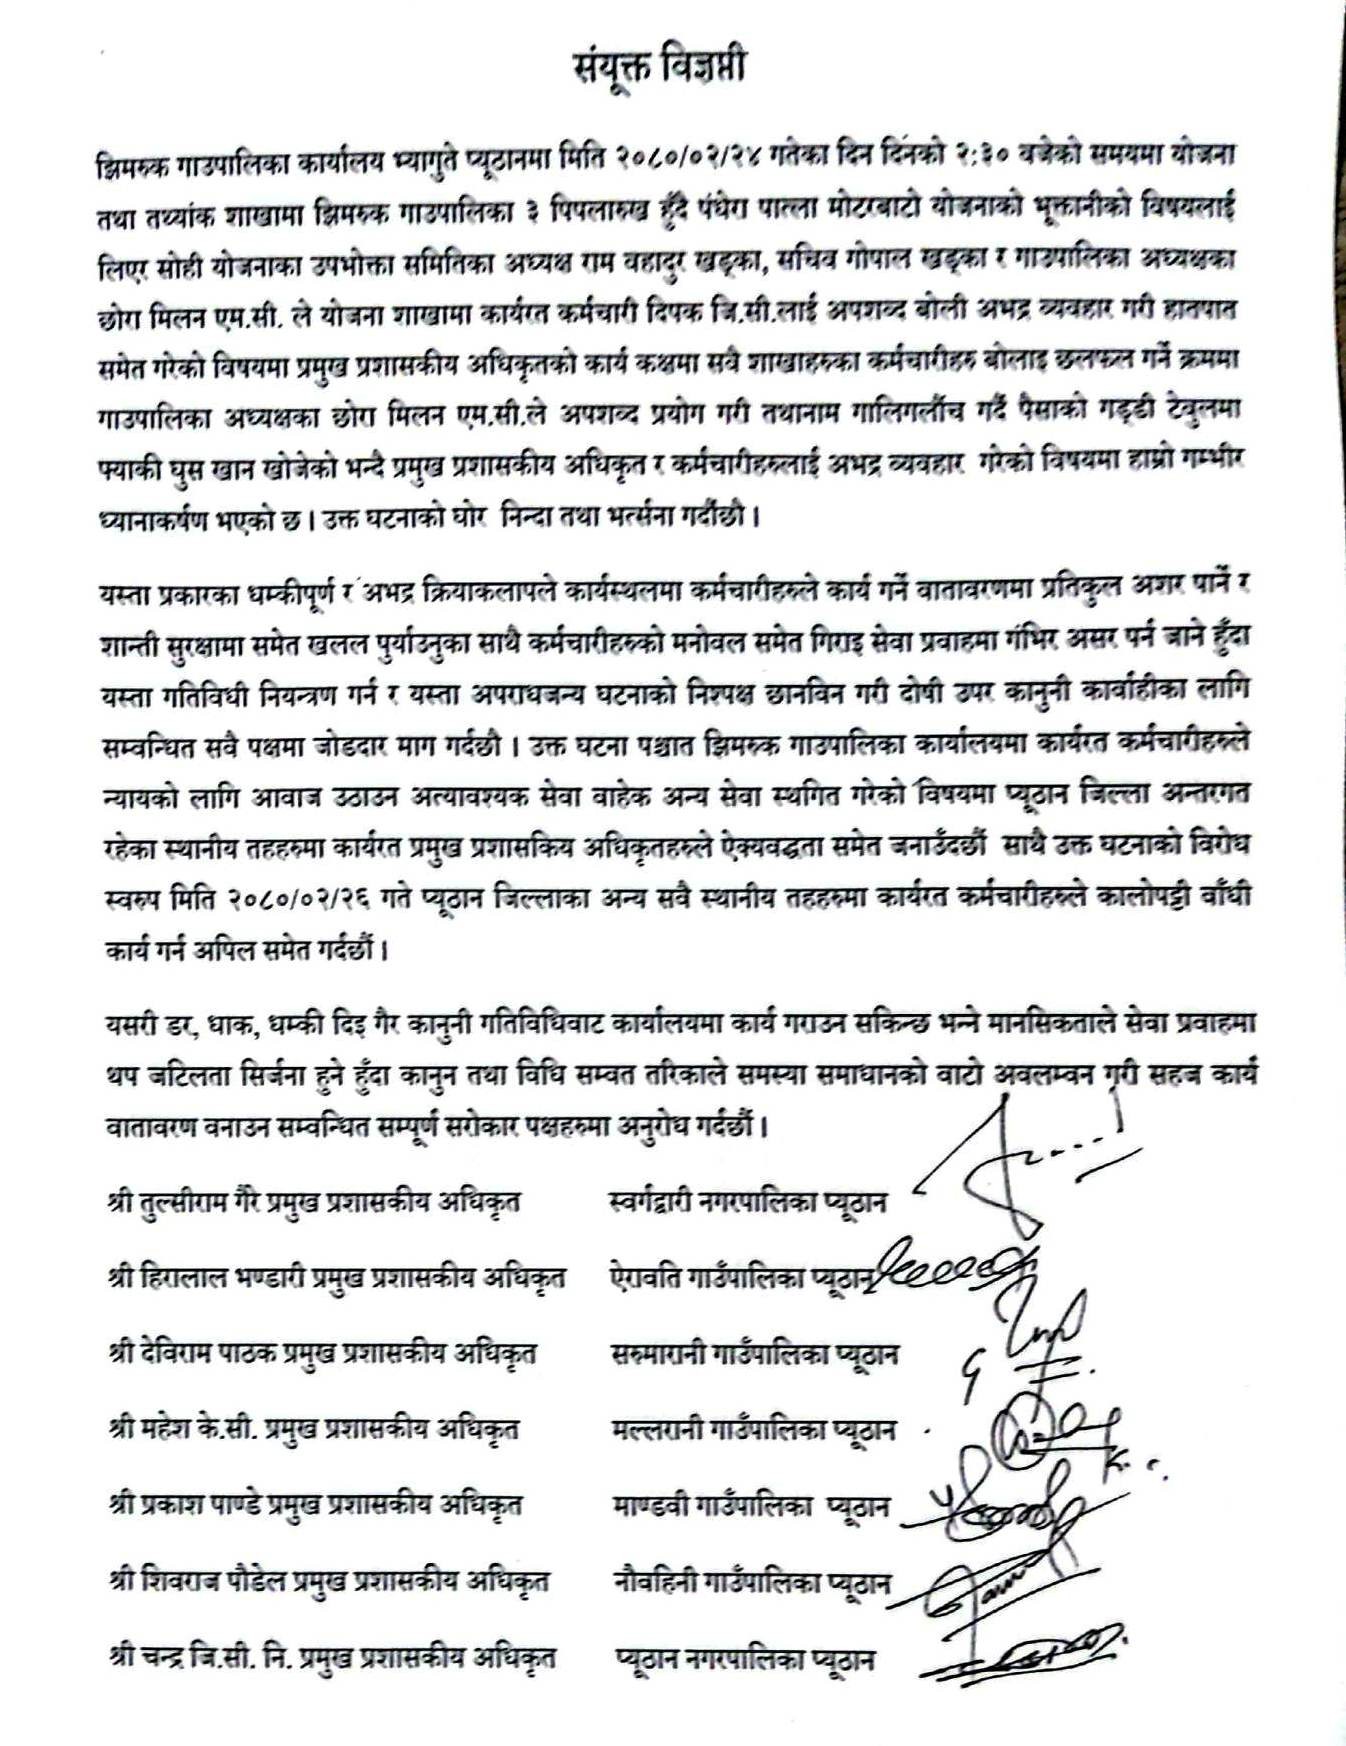 संयूक्त विज्ञप्ती
झिमरुक गाउपालिका कार्यालय भ्यागुते प्यूठानमा मिति २०८०/०२/२४ गतेका दिन दिनको २:३० वजेको समयमा योजना
तथा तथ्यांक शाखामा झिमरुक गाउपालिका ३ पिपलारुख हुँदै पंधेरा पात्ला मोटरबाटो योजनाको भूक्तानीको विषयलाई
लिएर सोही योजनाका उपभोक्ता समितिका अध्यक्ष राम वहादुर खड्का, सचिव गोपाल खड्का र गाउपालिका अध्यक्षका
छोरा मिलन एम.सी. ले योजना शाखामा कार्यरत कर्मचारी दिपक जि.सी.लाई अपशव्द बोली अभद्र व्यवहार गरी हातपात
समेत गरेको विषयमा प्रमुख प्रशासकीय अधिकृतको कार्य कक्षमा सवै शाखाहरुका कर्मचारीहरु बोलाइ छलफल गर्ने क्रममा
गाउपालिका अध्यक्षका छोरा मिलन एम.सी.ले अपशव्द प्रयोग गरी तथानाम गालिगलौंच गर्दै पैसाको गड्डी टेवुलमा
फ्याकी घुस खान खोजेको भन्दै प्रमुख प्रशासकीय अधिकृत र कर्मचारीहरुलाई अभद्र व्यवहार गरेको विषयमा हाम्रो गम्भीर
ध्यानाकर्षण भएको छ। उक्त घटनाको घोर निन्दा तथा भर्त्सना गर्दौछौ।
यस्ता प्रकारका धम्कीपूर्ण र अभद्र क्रियाकलापले कार्यस्थलमा कर्मचारीहरुले कार्य गर्ने वातावरणमा प्रतिकुल अशर पार्ने र
शान्ती सुरक्षामा समेत खलल पुर्याउनुका साथै कर्मचारीहरुको मनोवल समेत गिराइ सेवा प्रवाहमा गंभिर असर पर्न जाने हुँदा
यस्ता गतिविधी नियन्त्रण गर्न र यस्ता अपराधजन्य घटनाको निश्पक्ष छानविन गरी दोषी उपर कानुनी कार्वाहीका लागि
सम्वन्धित सवै पक्षमा जोडदार माग गर्दछौ। उक्त घटना पश्चात झिमरुक गाउपालिका कार्यालयमा कार्यरत कर्मचारीहरुले
न्यायको लागि आवाज उठाउन अत्यावश्यक सेवा वाहेक अन्य सेवा स्थगित गरेको विषयमा प्यूठान जिल्ला अन्तरगत
रहेका स्थानीय तहहरुमा कार्यरत प्रमुख प्रशासकिय अधिकृतहरुले ऐक्यवद्धता समेत जनाउँदछौं साथै उक्त घटनाको विरोध
स्वरुप मिति २०८०/०२/२६ गते प्यूठान जिल्लाका अन्य सवै स्थानीय तहहरुमा कार्यरत कर्मचारीहरुले कालोपट्टी वाँधी
कार्य गर्न अपिल समेत गर्दछौं।
यसरी डर, धाक, धम्की दिइ गैर कानुनी गतिविधिवाट कार्यालयमा कार्य गराउन सकिन्छ भन्ने मानसिकताले सेवा प्रवाहमा
थप जटिलता सिर्जना हुने हुँदा कानुन तथा विधि सम्वत तरिकाले समस्या समाधानको वाटो अवलम्वन गरी सहज कार्य
वातावरण वनाउन सम्वन्धित सम्पूर्ण सरोकार पक्षहरुमा अनुरोध गर्दछौं।
श्री तुल्सीराम गैरे प्रमुख प्रशासकीय अधिकृत स्वर्गद्वारी नगरपालिका प्यूठान
श्री हिरालाल भण्डारी प्रमुख प्रशासकीय अधिकृत ऐरावति गाउँपालिका प्यूठान
श्री देविराम पाठक प्रमुख प्रशासकीय अधिकृत सरुमारानी गाउँपालिका प्यूठान
श्री महेश के.सी. प्रमुख प्रशासकीय अधिकृत मल्लरानी गाउँपालिका प्यूठान
श्री प्रकाश पाण्डे प्रमुख प्रशासकीय अधिकृत माण्डवी गाउँपालिका प्यूठान
श्री शिवराज पौडेल प्रमुख प्रशासकीय अधिकृत नौवहिनी गाउँपालिका प्यूठान
श्री चन्द्र जि.सी. नि. प्रमुख प्रशासकीय अधिकृत प्यूठान नगरपालिका प्यूठान